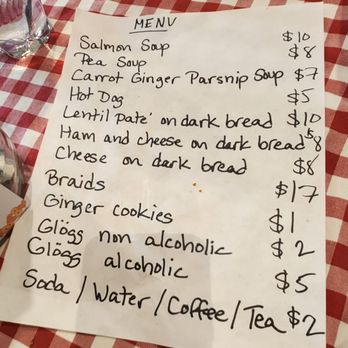 MENU
Salmon Soup $10
Pea Soup $8
Carrot Ginger Parsnip Soup $7
Hot Dog $5
Lentil paté on dark bread $10
Ham and cheese on dark bread $8
Cheese on dark bread $8
Braids $17
Ginger cookies $1
Glögg non alcoholic $2
Glögg alcoholic $5
Soda / Water / Coffee / Tea $2